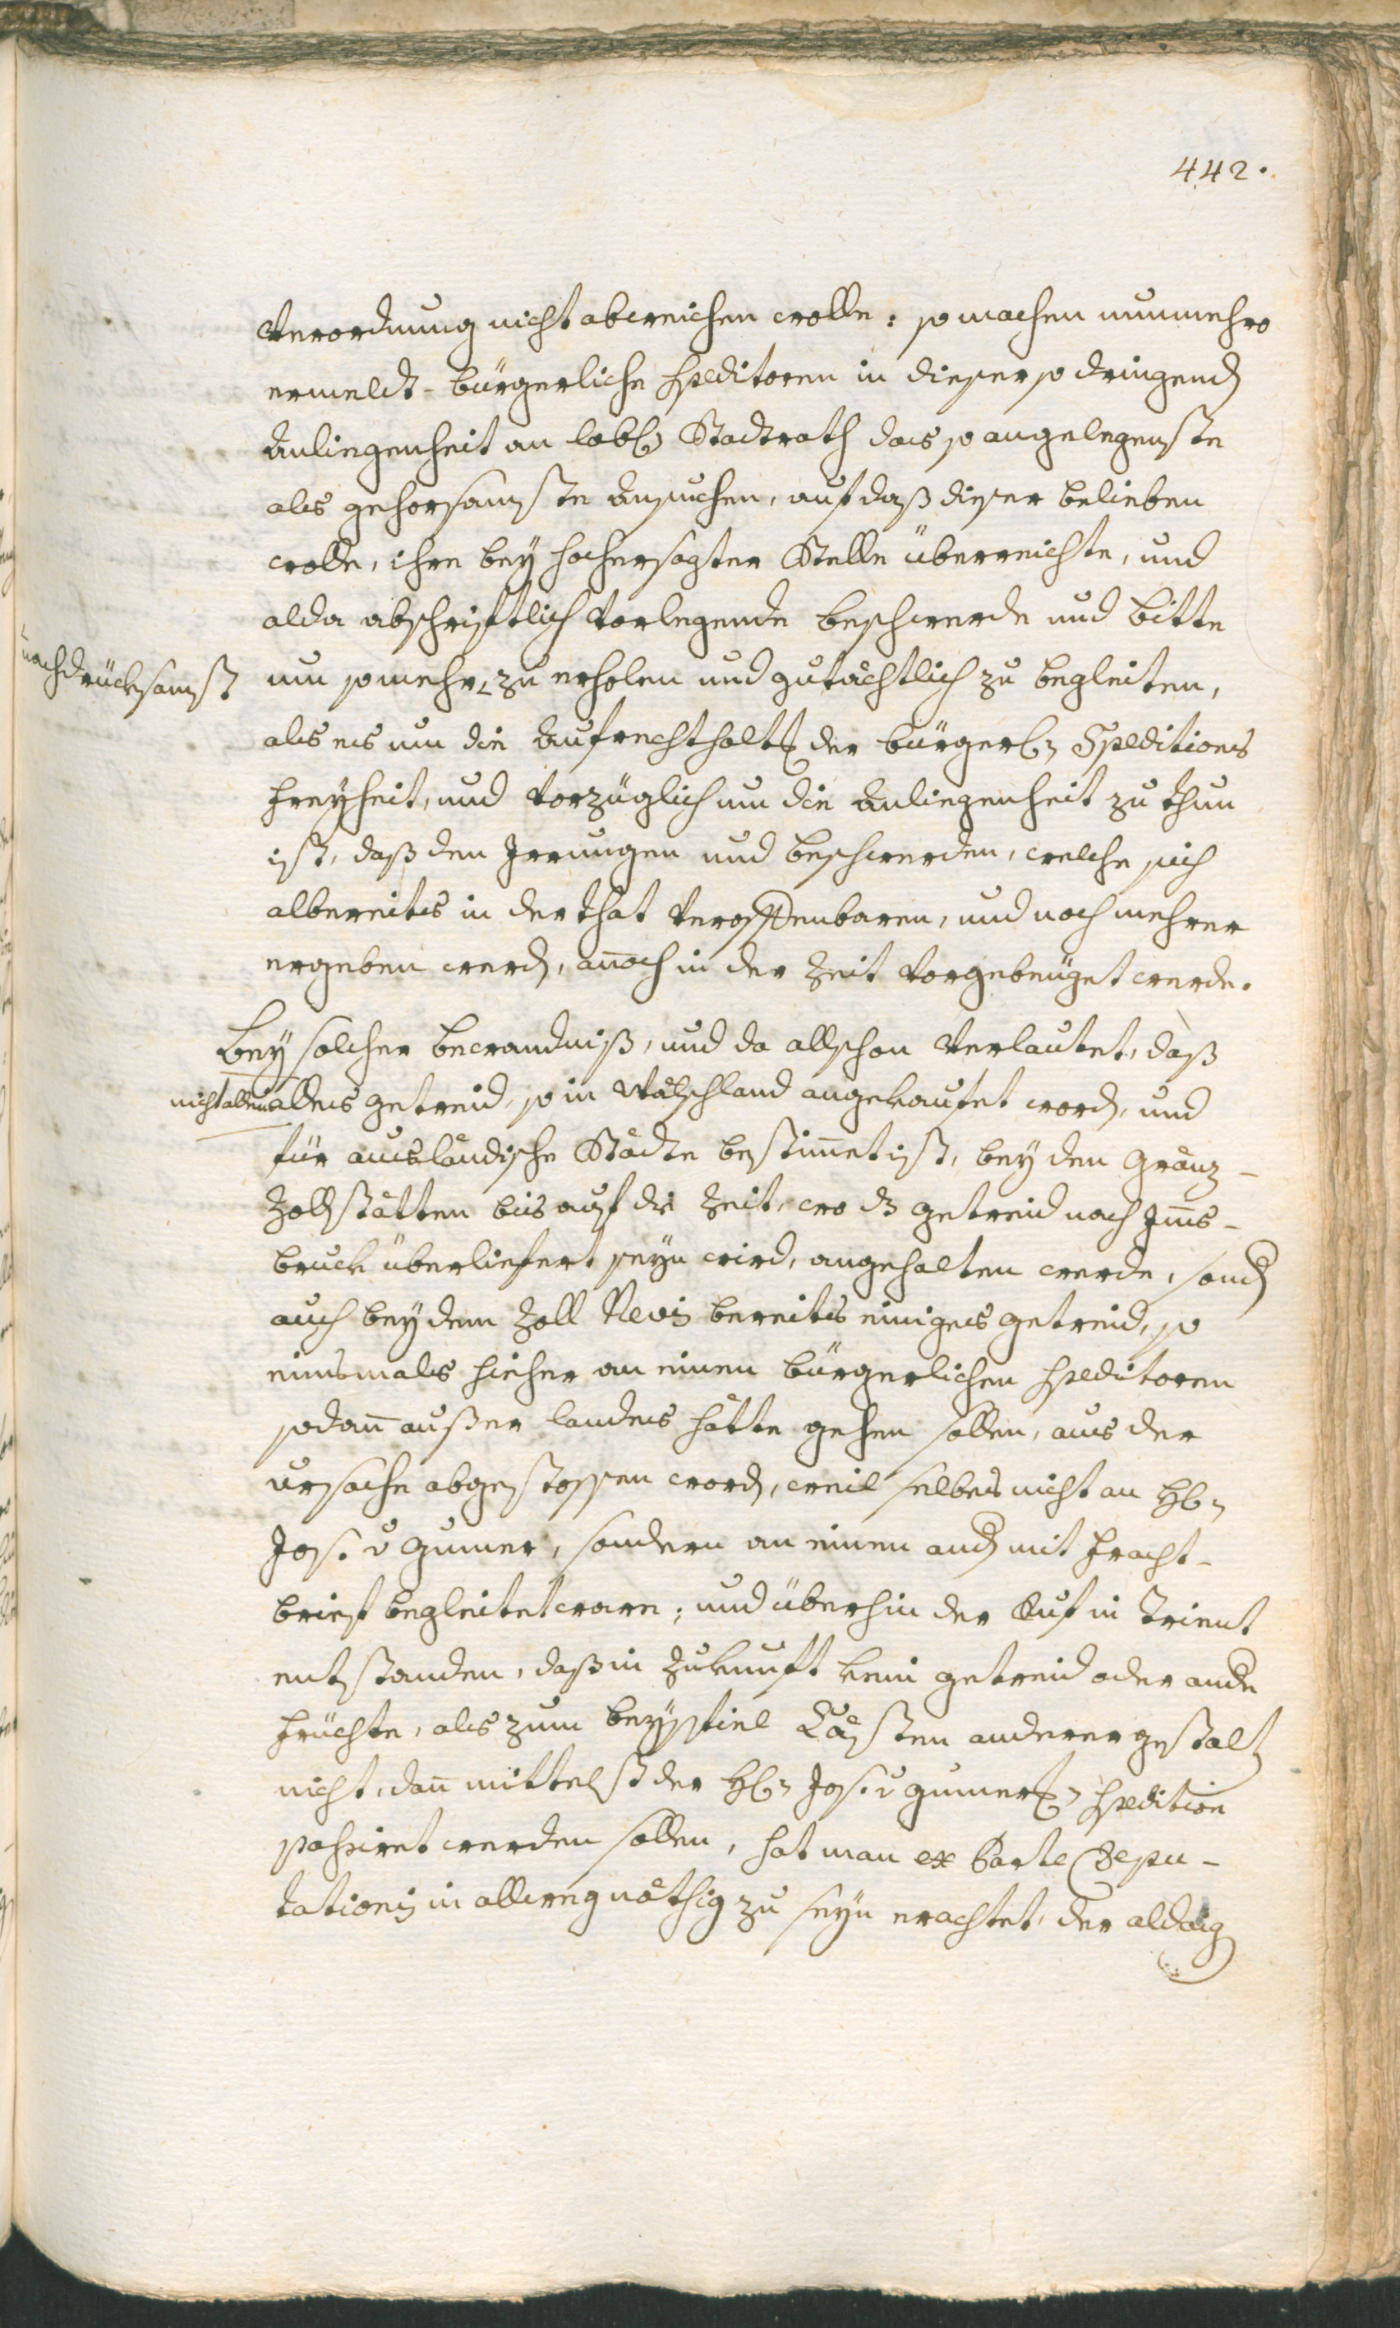 442.
Verordnung nicht abweichen wolle: so machen nunmehro
ermeldt-bürgerliche Speditoren in dieser so dringend
Anliegenheit an lobl. Stadtrath das so angelegenste
als gehorsamste Ansuchen, auf daß dieser belieben
wolle, ihre bey hochersagter Stelle überreichte, und
alda abschriftlich vorlegende Beschwerde und Bitte
nachdrücksamst
um so mehr zu erholen und gutächtlich zu begleiten,
als es um die Aufrechthalt der bürgerl. Speditions
Freyheit, und vorzüglich um die Anliegenheit zu thun
ist, daß den Irrungen und Beschwerden, welche sich
albereits in der That veroffenbaren, und noch mehrer
ergeben werd, annoch in der Zeit vorgebeuget werde.
Bey solcher Bewandniß, und da allschon verlautet, daß
nicht allein
alles Getreid, so in Wälschland angekaufet word, und
für ausländische Städte bestimmet ist, bey den Gränz-
Zollstätten bis auf die Zeit, wo ds Getreid nach Inns-
bruck überliefert seyn wird, angehalten werde, sond
auch bey dem Zoll Nevis bereits einiges Getreid, so
einsmals hieher an einen bürgerlichen Speditoren
sodann außer Landes hätte gehen sollen, aus der
Ursache abgestossen word, weil selbes nicht an H
Jos. v Gumer, sondern an einen and mit Fracht-
brief begleitet ware; und überhin der Ruf in Trient
entstanden, daß in Zukunft kein Getreid oder ande
Früchte, als zum Beyspiel Kästen anderergestalt
nicht, dann mittelst der H Jos. v Gumer Spedition
passiret werden sollen, hat man ex Parte Depu-
tationis in allweg nöthig zu seyn erachtet, der aldaig